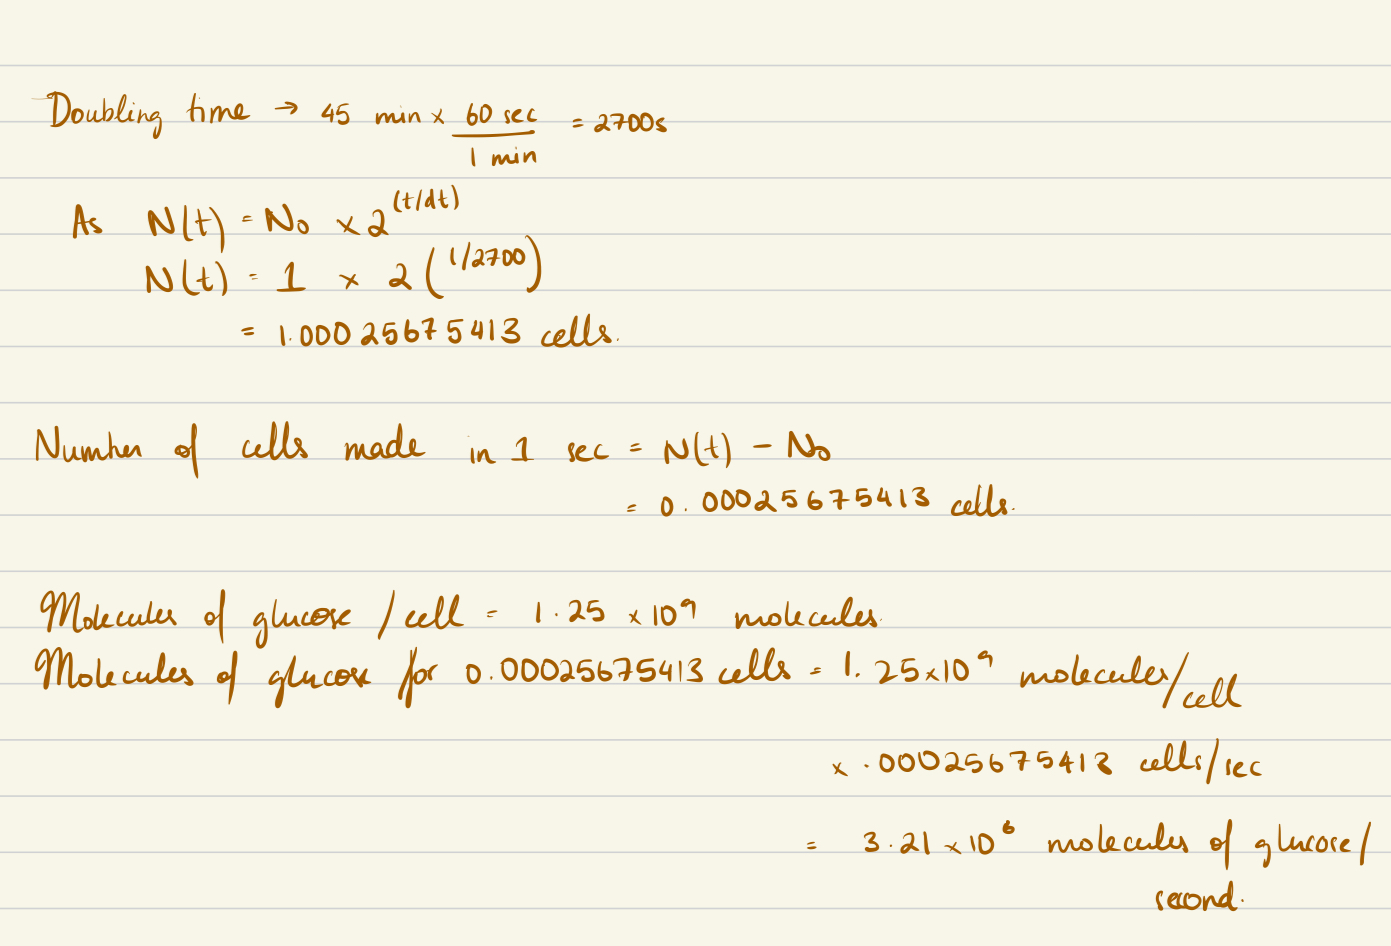 Doubling time → 45 min x 60 sec / 1 min = 2700s
As N(t) = N₀ x 2^(t/dt)
N(t) = 1 x 2^(1/2700)
= 1.00025675413 cells.
Number of cells made in 1 sec = N(t) - N₀
= 0.00025675413 cells.
Molecules of glucose / cell = 1.25 x 10⁹ molecules.
Molecules of glucose for 0.00025675413 cells = 1.25 x 10⁹ molecules/cell
x .00025675413 cells/sec
= 3.21 x 10⁶ molecules of glucose/
second.